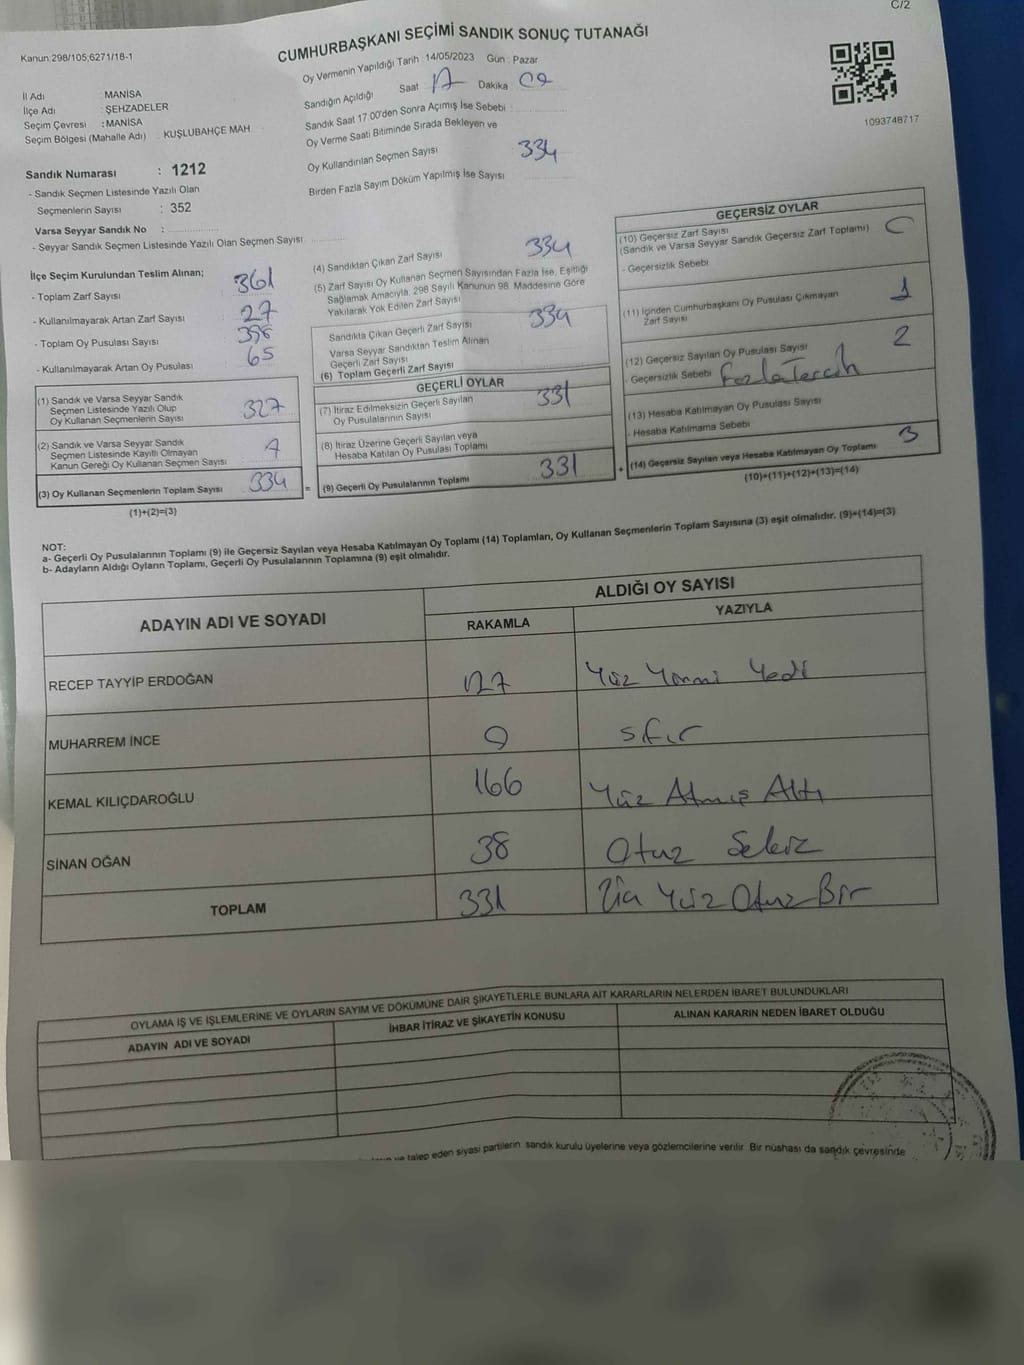 C/2
Kanun.298/105;6271/18-1
CUMHURBAŞKANI SEÇİMİ SANDIK SONUÇ TUTANAĞI
İl Adı : MANİSA
İlçe Adı : ŞEHZADELER
Seçim Çevresi : MANİSA
Seçim Bölgesi (Mahalle Adı) : KUŞLUBAHÇE MAH
Sandık Numarası : 1212
- Sandık Seçmen Listesinde Yazılı Olan
Seçmenlerin Sayısı : 352
Varsa Seyyar Sandık No :
- Seyyar Sandık Seçmen Listesinde Yazılı Olan Seçmen Sayısı
Oy Vermenin Yapıldığı Tarih : 14/05/2023 Gün : Pazar
Sandığın Açıldığı Saat 17 Dakika
Sandık Saat 17:00'den Sonra Açımış İse Sebebi :
Oy Verme Saati Bitiminde Sırada Bekleyen ve
Oy Kullandırılan Seçmen Sayısı 334
Birden Fazla Sayım Döküm Yapılmış İse Sayısı
1093748717
İlçe Seçim Kurulundan Teslim Alınan;
- Toplam Zarf Sayısı 361
- Kullanılmayarak Artan Zarf Sayısı 27
- Toplam Oy Pusulası Sayısı 396
- Kullanılmayarak Artan Oy Pusulası 65
(1) Sandık ve Varsa Seyyar Sandık
Seçmen Listesinde Yazılı Olup
Oy Kullanan Seçmenlerin Sayısı 327
(2) Sandık ve Varsa Seyyar Sandık
Seçmen Listesinde Kayıtlı Olmayan
Kanun Gereği Oy Kullanan Seçmen Sayısı 7
(3) Oy Kullanan Seçmenlerin Toplam Sayısı 334 =
(1)+(2)=(3)
(4) Sandıktan Çıkan Zarf Sayısı 334
(5) Zarf Sayısı Oy Kullanan Seçmen Sayısından Fazla İse, Eşitliği
Sağlamak Amacıyla, 298 Sayılı Kanunun 98. Maddesine Göre
Yakılarak Yok Edilen Zarf Sayısı
Sandıkta Çıkan Geçerli Zarf Sayısı 334
Varsa Seyyar Sandıktan Teslim Alınan
Geçerli Zarf Sayısı
(6) Toplam Geçerli Zarf Sayısı
GEÇERLİ OYLAR
(7) İtiraz Edilmeksizin Geçerli Sayılan
Oy Pusulalarının Sayısı 331
(8) İtiraz Üzerine Geçerli Sayılan veya
Hesaba Katılan Oy Pusulası Toplamı
(9) Geçerli Oy Pusulalarının Toplamı 331 +
GEÇERSİZ OYLAR
(10) Geçersiz Zarf Sayısı
(Sandık ve Varsa Seyyar Sandık Geçersiz Zarf Toplamı)
- Geçersizlik Sebebi
(11) İçinden Cumhurbaşkanı Oy Pusulası Çıkmayan
Zarf Sayısı 1
(12) Geçersiz Sayılan Oy Pusulası Sayısı 2
- Geçersizlik Sebebi Fazla Tercih
(13) Hesaba Katılmayan Oy Pusulası Sayısı
- Hesaba Katılmama Sebebi
(14) Geçersiz Sayılan veya Hesaba Katılmayan Oy Toplamı 3
(10)+(11)+(12)+(13)=(14)
NOT:
a- Geçerli Oy Pusulalarının Toplamı (9) ile Geçersiz Sayılan veya Hesaba Katılmayan Oy Toplamı (14) Toplamları, Oy Kullanan Seçmenlerin Toplam Sayısına (3) eşit olmalıdır. (9)+(14)=(3)
b- Adayların Aldığı Oyların Toplamı, Geçerli Oy Pusulalarının Toplamına (9) eşit olmalıdır.
ADAYIN ADI VE SOYADI
ALDIĞI OY SAYISI
RAKAMLA YAZIYLA
RECEP TAYYİP ERDOĞAN 127 Yüz Yirmi Yedi
MUHARREM İNCE 0 sıfır
KEMAL KILIÇDAROĞLU 166 Yüz Atmış Altı
SİNAN OĞAN 38 Otuz Sekiz
TOPLAM 331 Yüz Otuz Bir
OYLAMA İŞ VE İŞLEMLERİNE VE OYLARIN SAYIM VE DÖKÜMÜNE DAİR ŞİKAYETLERLE BUNLARA AİT KARARLARIN NELERDEN İBARET BULUNDUKLARI
ADAYIN ADI VE SOYADI İHBAR İTİRAZ VE ŞİKAYETİN KONUSU ALINAN KARARIN NEDEN İBARET OLDUĞU
ve talep eden siyasi partilerin sandık kurulu üyelerine veya gözlemcilerine verilir. Bir nüshası da sandık çevresinde